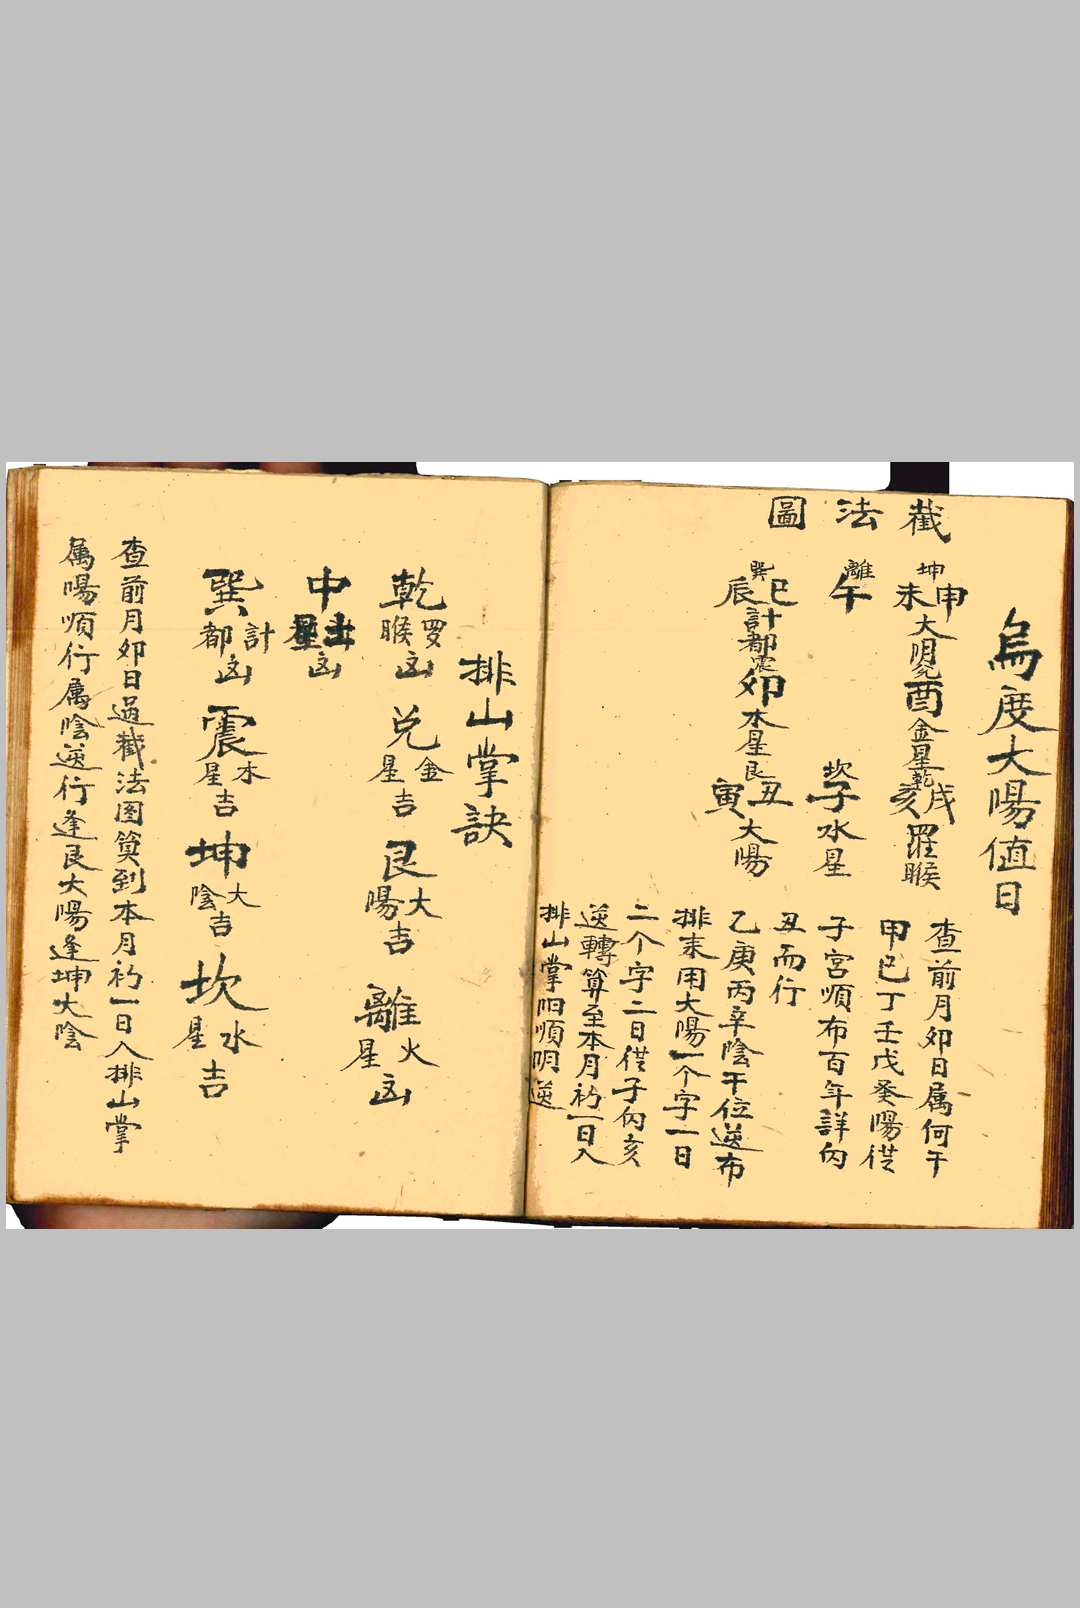 烏度大陽值日
截法圖
坤 申未 大陰
兌 酉 金星
乾 戌亥 羅睺
離 午
坎 子 水星
巽 巳辰 計都
震 卯 木星
艮 丑寅 大陽
查前月卯日属何干
甲己丁壬戊癸陽從
子宮順布百年詳內
丑而行
乙庚丙辛陰干位逆布
排來用大陽一个字一日
二个字二日從子內亥
逆轉算至本月初一日入
排山掌阳順阴逆
排山掌訣
乾 罗睺 凶 兌 金星 吉 艮 大陽 吉 離 火星 凶
中 土星 凶
巽 計都 凶 震 木星 吉 坤 大陰 吉 坎 水星 吉
查前月卯日過截法图算到本月初一日入排山掌
属陽順行属陰逆行逢艮大陽逢坤大陰